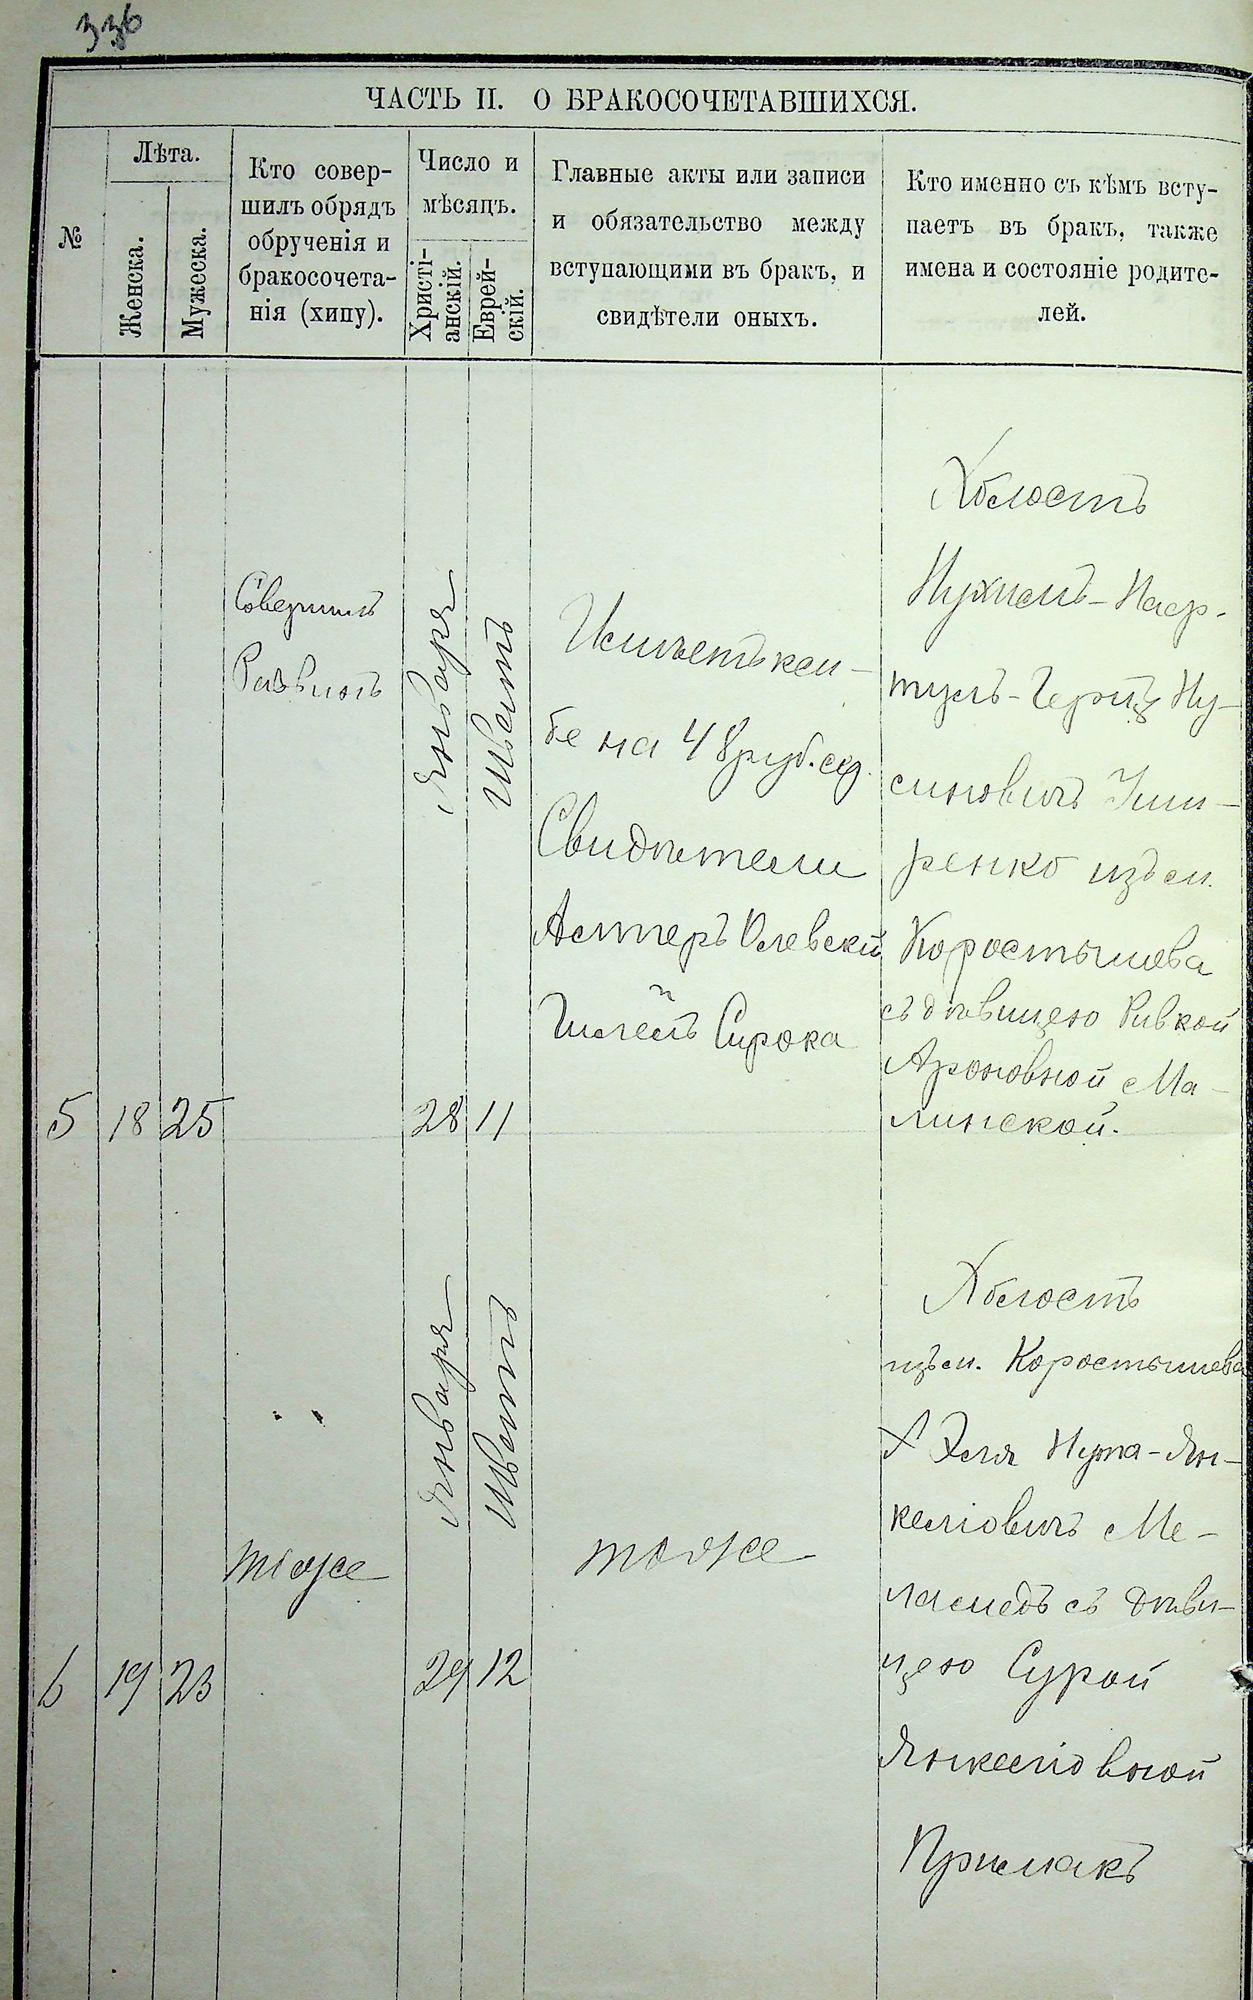 336
ЧАСТЬ II. О БРАКОСОЧЕТАВШИХСЯ.
№
Лѣта.
Женска.
Мужеска.
Кто совер-
шилъ обрядъ
обрученія и
бракосочета-
нія (хипу).
Число и
мѣсяцъ.
Христі-
анскій.
Еврей-
скій.
Главные акты или записи
и обязательство между
вступающими въ бракъ, и
свидѣтели оныхъ.
Кто именно съ кѣмъ всту-
паетъ въ бракъ, также
имена и состояніе родите-
лей.
5
18
25
Совершилъ
Раввинъ
Января
28
Шватъ
11
бе на 48 руб. сер.
Свидѣтели
Олевскій
Сирока
Холостъ
Нухимъ-
Герщъ Ну-
синовичъ
ренко изъ м.
Коростышева
съ дѣвицею Ривкой
Ароновной Ма-
линской.
6
19
23
тоже
Января
29
Шватъ
12
тоже
Холостъ
изъ м. Коростышева
X Эля Нута-Ян-
келіовичъ Ме-
ламедъ съ дѣви-
цею Сурой
Янкеліовной
Примакъ